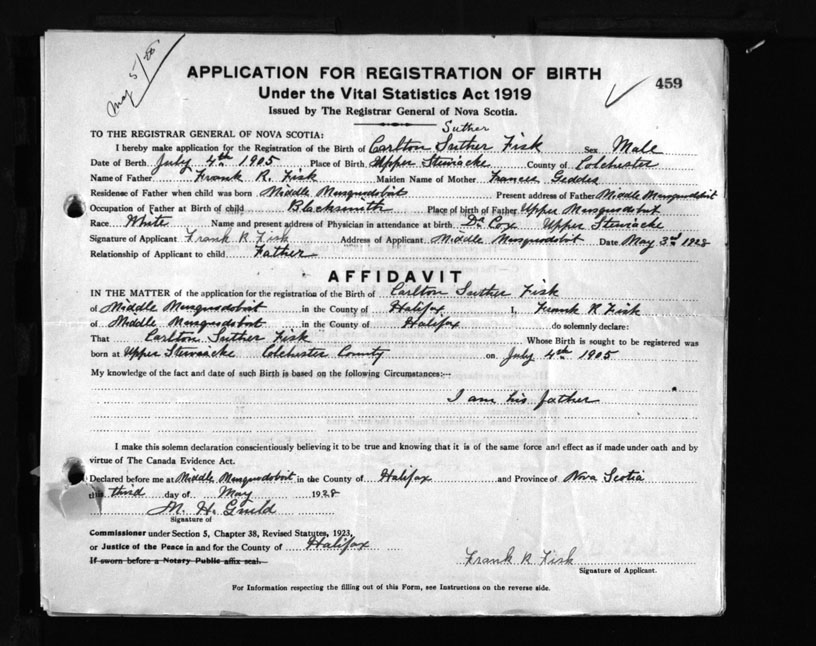 May 5/28
APPLICATION FOR REGISTRATION OF BIRTH
459
Under the Vital Statistics Act 1919
Issued by The Registrar General of Nova Scotia.
Suther
TO THE REGISTRAR GENERAL OF NOVA SCOTIA:
I hereby make application for the Registration of the Birth of Carlton Suther Fisk Sex Male
Date of Birth July 4th 1905 Place of Birth Upper Stewiacke County of Colchester
Name of Father Frank R. Fisk Maiden Name of Mother Frances Geddes
Residence of Father when child was born Middle Musquodobit Present address of Father Middle Musquodobit
Occupation of Father at Birth of child Blacksmith Place of birth of Father Upper Musquodobit
Race White Name and present address of Physician in attendance at birth Dr Cox Upper Stewiacke
Signature of Applicant Frank R Fisk Address of Applicant Middle Musquodobit Date May 3rd 1928
Relationship of Applicant to child Father
AFFIDAVIT
IN THE MATTER of the application for the registration of the Birth of Carlton Suther Fisk
of Middle Musquodobit in the County of Halifax I, Frank R Fisk
of Middle Musquodobit in the County of Halifax do solemnly declare:
That Carlton Suther Fisk Whose Birth is sought to be registered was
born at Upper Stewiacke Colchester County on July 4th 1905
My knowledge of the fact and date of such Birth is based on the following Circumstances:—
I am his father
I make this solemn declaration conscientiously believing it to be true and knowing that it is of the same force and effect as if made under oath and by
virtue of The Canada Evidence Act.
Declared before me at Middle Musquodobit in the County of Halifax and Province of Nova Scotia
this third day of May 1928
M. H.
Signature of
Commissioner under Section 5, Chapter 38, Revised Statutes, 1923,
or Justice of the Peace in and for the County of Halifax
If sworn before a Notary Public affix seal.
Frank R Fisk
Signature of Applicant.
For Information respecting the filling out of this Form, see Instructions on the reverse side.